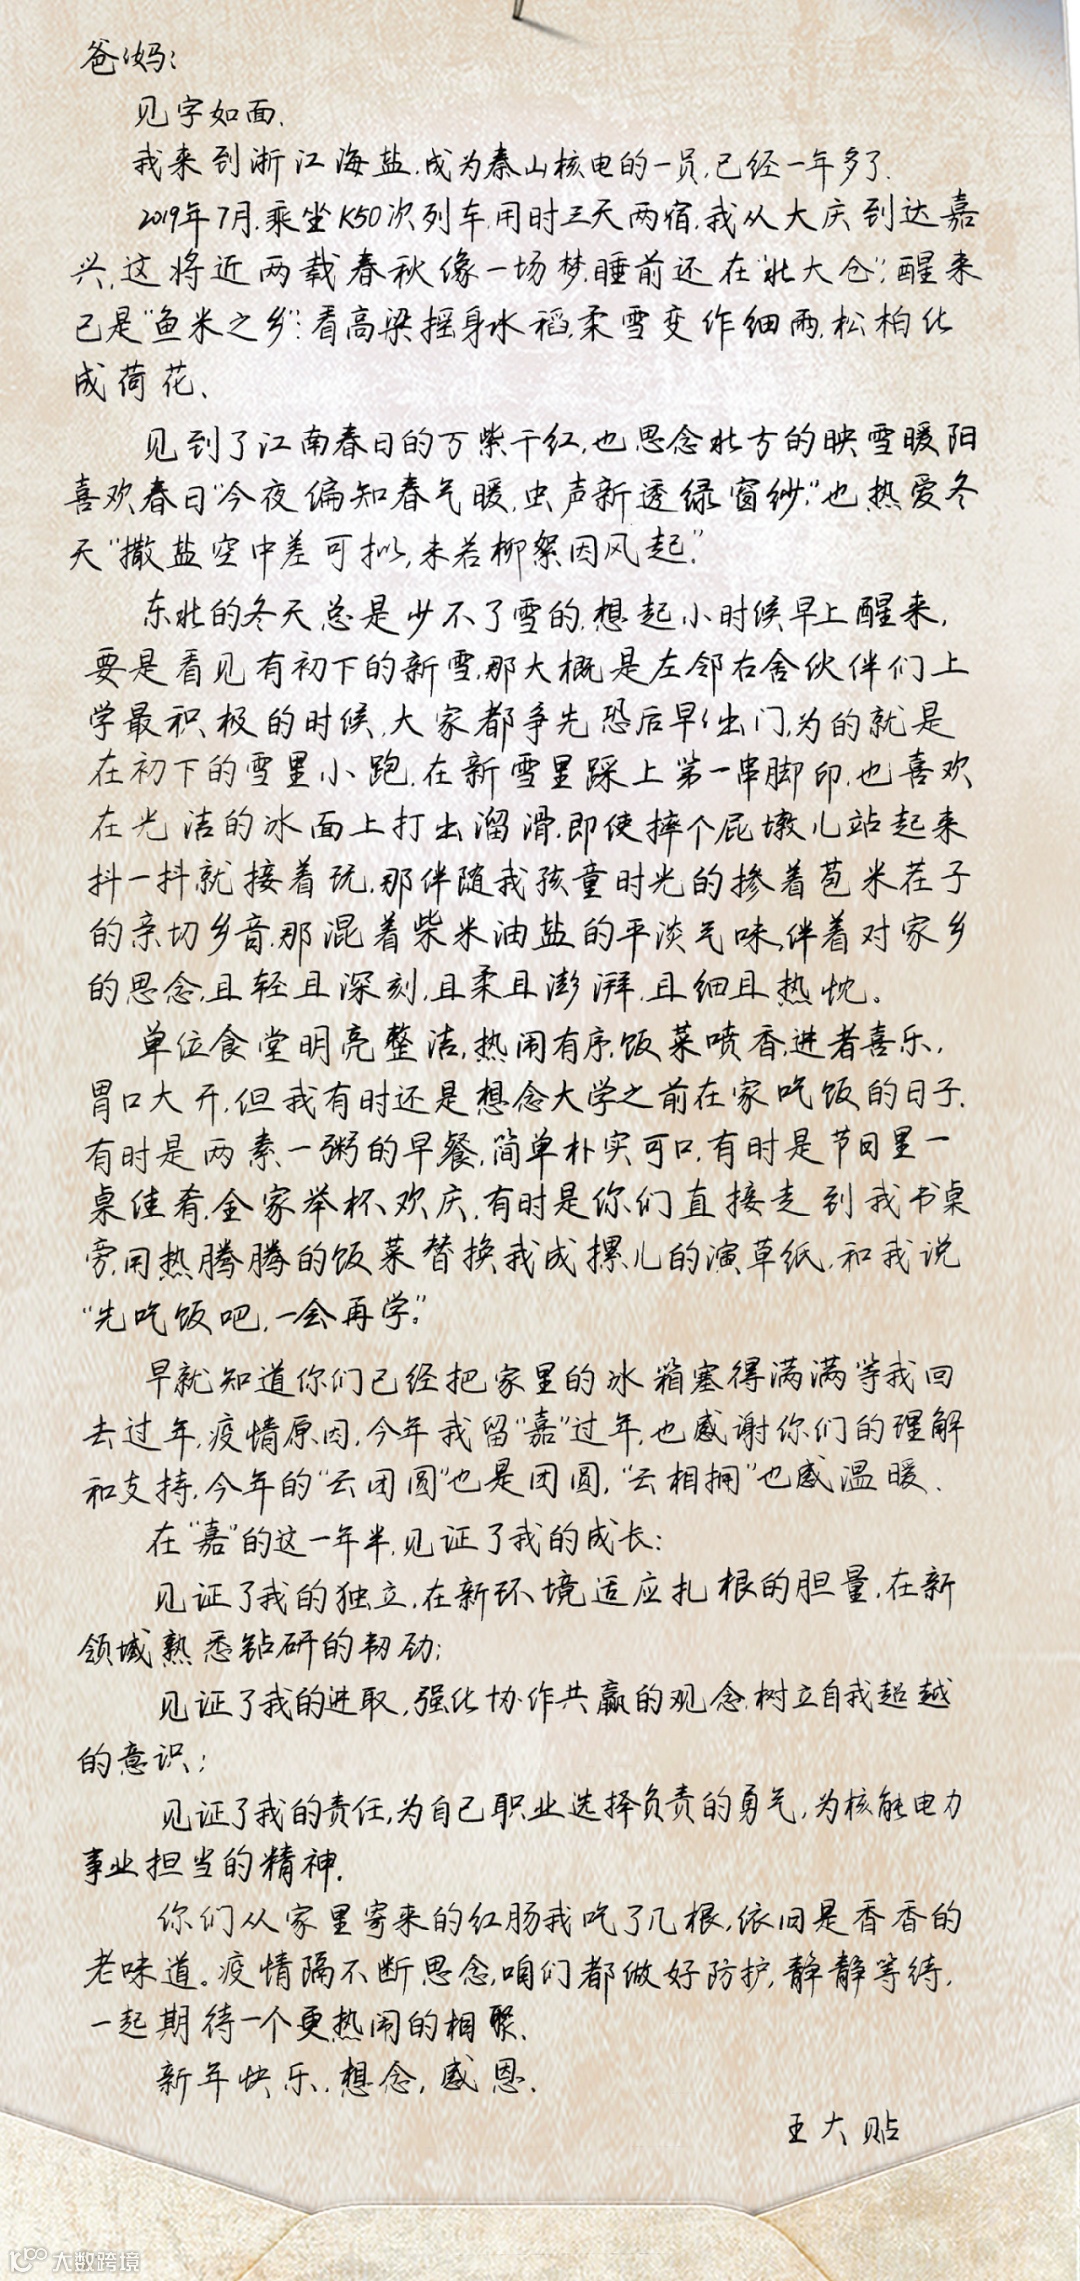 爸妈：
见字如面.
我来到浙江海盐.成为秦山核电的一员.已经一年多了.
2019年7月.乘坐K50次列车.用时三天两宿.我从大庆到达嘉
兴.这将近两载春秋像一场梦.睡前还在"北大仓"；醒来
已是"鱼米之乡"：看高梁摇身水稻.柔雪变作细雨.松柏化
成荷花、
见到了江南春日的万紫千红.也思念北方的映雪暖阳
喜欢春日"今夜偏知春气暖,虫声新透绿窗纱."也热爱冬
天"撒盐空中差可拟,未若柳絮因风起."
东北的冬天.总是少不了雪的.想起小时候早上醒来,
要是看见有初下的新雪.那大概是左邻右舍伙伴们上
学最积极的时候.大家都争先恐后早早出门.为的就是
在初下的雪里小跑.在新雪里踩上第一串脚印.也喜欢
在光洁的冰面上打出溜滑.即使摔个屁墩儿站起来
抖一抖就接着玩.那伴随我孩童时光的掺着苞米茬子
的亲切乡音.那混着柴米油盐的平淡气味,伴着对家乡
的思念,且轻且深刻,且柔且澎湃.且细且热忱。
单位食堂明亮整洁,热闹有序.饭菜喷香,进者喜乐,
胃口大开.但我有时还是想念大学之前在家吃饭的日子.
有时是两素一粥的早餐.简单朴实可口.有时是节日里一
桌佳肴.全家举杯欢庆.有时是你们直接走到我书桌
旁.用热腾腾的饭菜替换我成摞儿的演草纸.和我说
"先吃饭吧,一会再学."
早就知道你们已经把家里的冰箱塞得满满等我回
去过年.疫情原因.今年我留"嘉"过年.也感谢你们的理解
和支持.今年的"云团圆"也是团圆,"云相拥"也感温暖.
在"嘉"的这一年半.见证了我的成长：
见证了我的独立.在新环境适应扎根的胆量.在新
领域熟悉钻研的韧劲；
见证了我的进取,强化协作共赢的观念.树立自我超越
的意识；
见证了我的责任,为自己职业选择负责的勇气,为核能电力
事业担当的精神.
你们从家里寄来的红肠我吃了几根,依旧是香香的
老味道。疫情隔不断思念,咱们都做好防护,静静等待,
一起期待一个更热闹的相聚.
新年快乐.想念,感恩.
王大贴
大数跨境